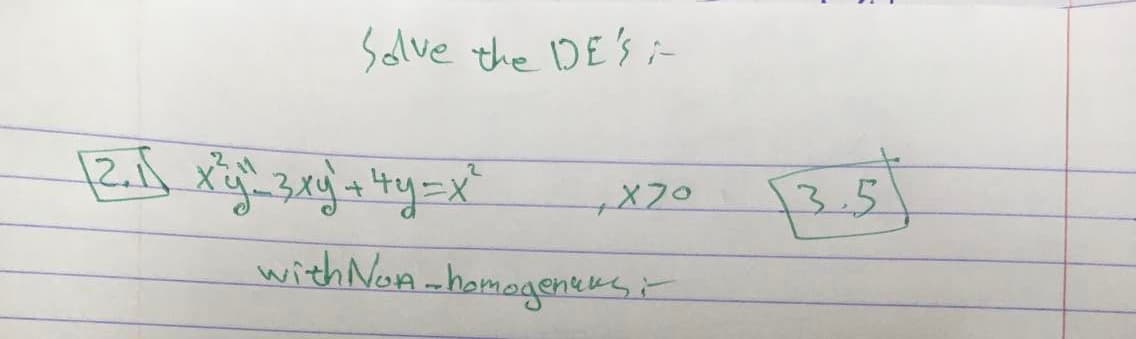 Solve the DE's :-
2.1 x²y"-3xy'+4y=x² , x>0 3.5
with Non-homogeneus :-